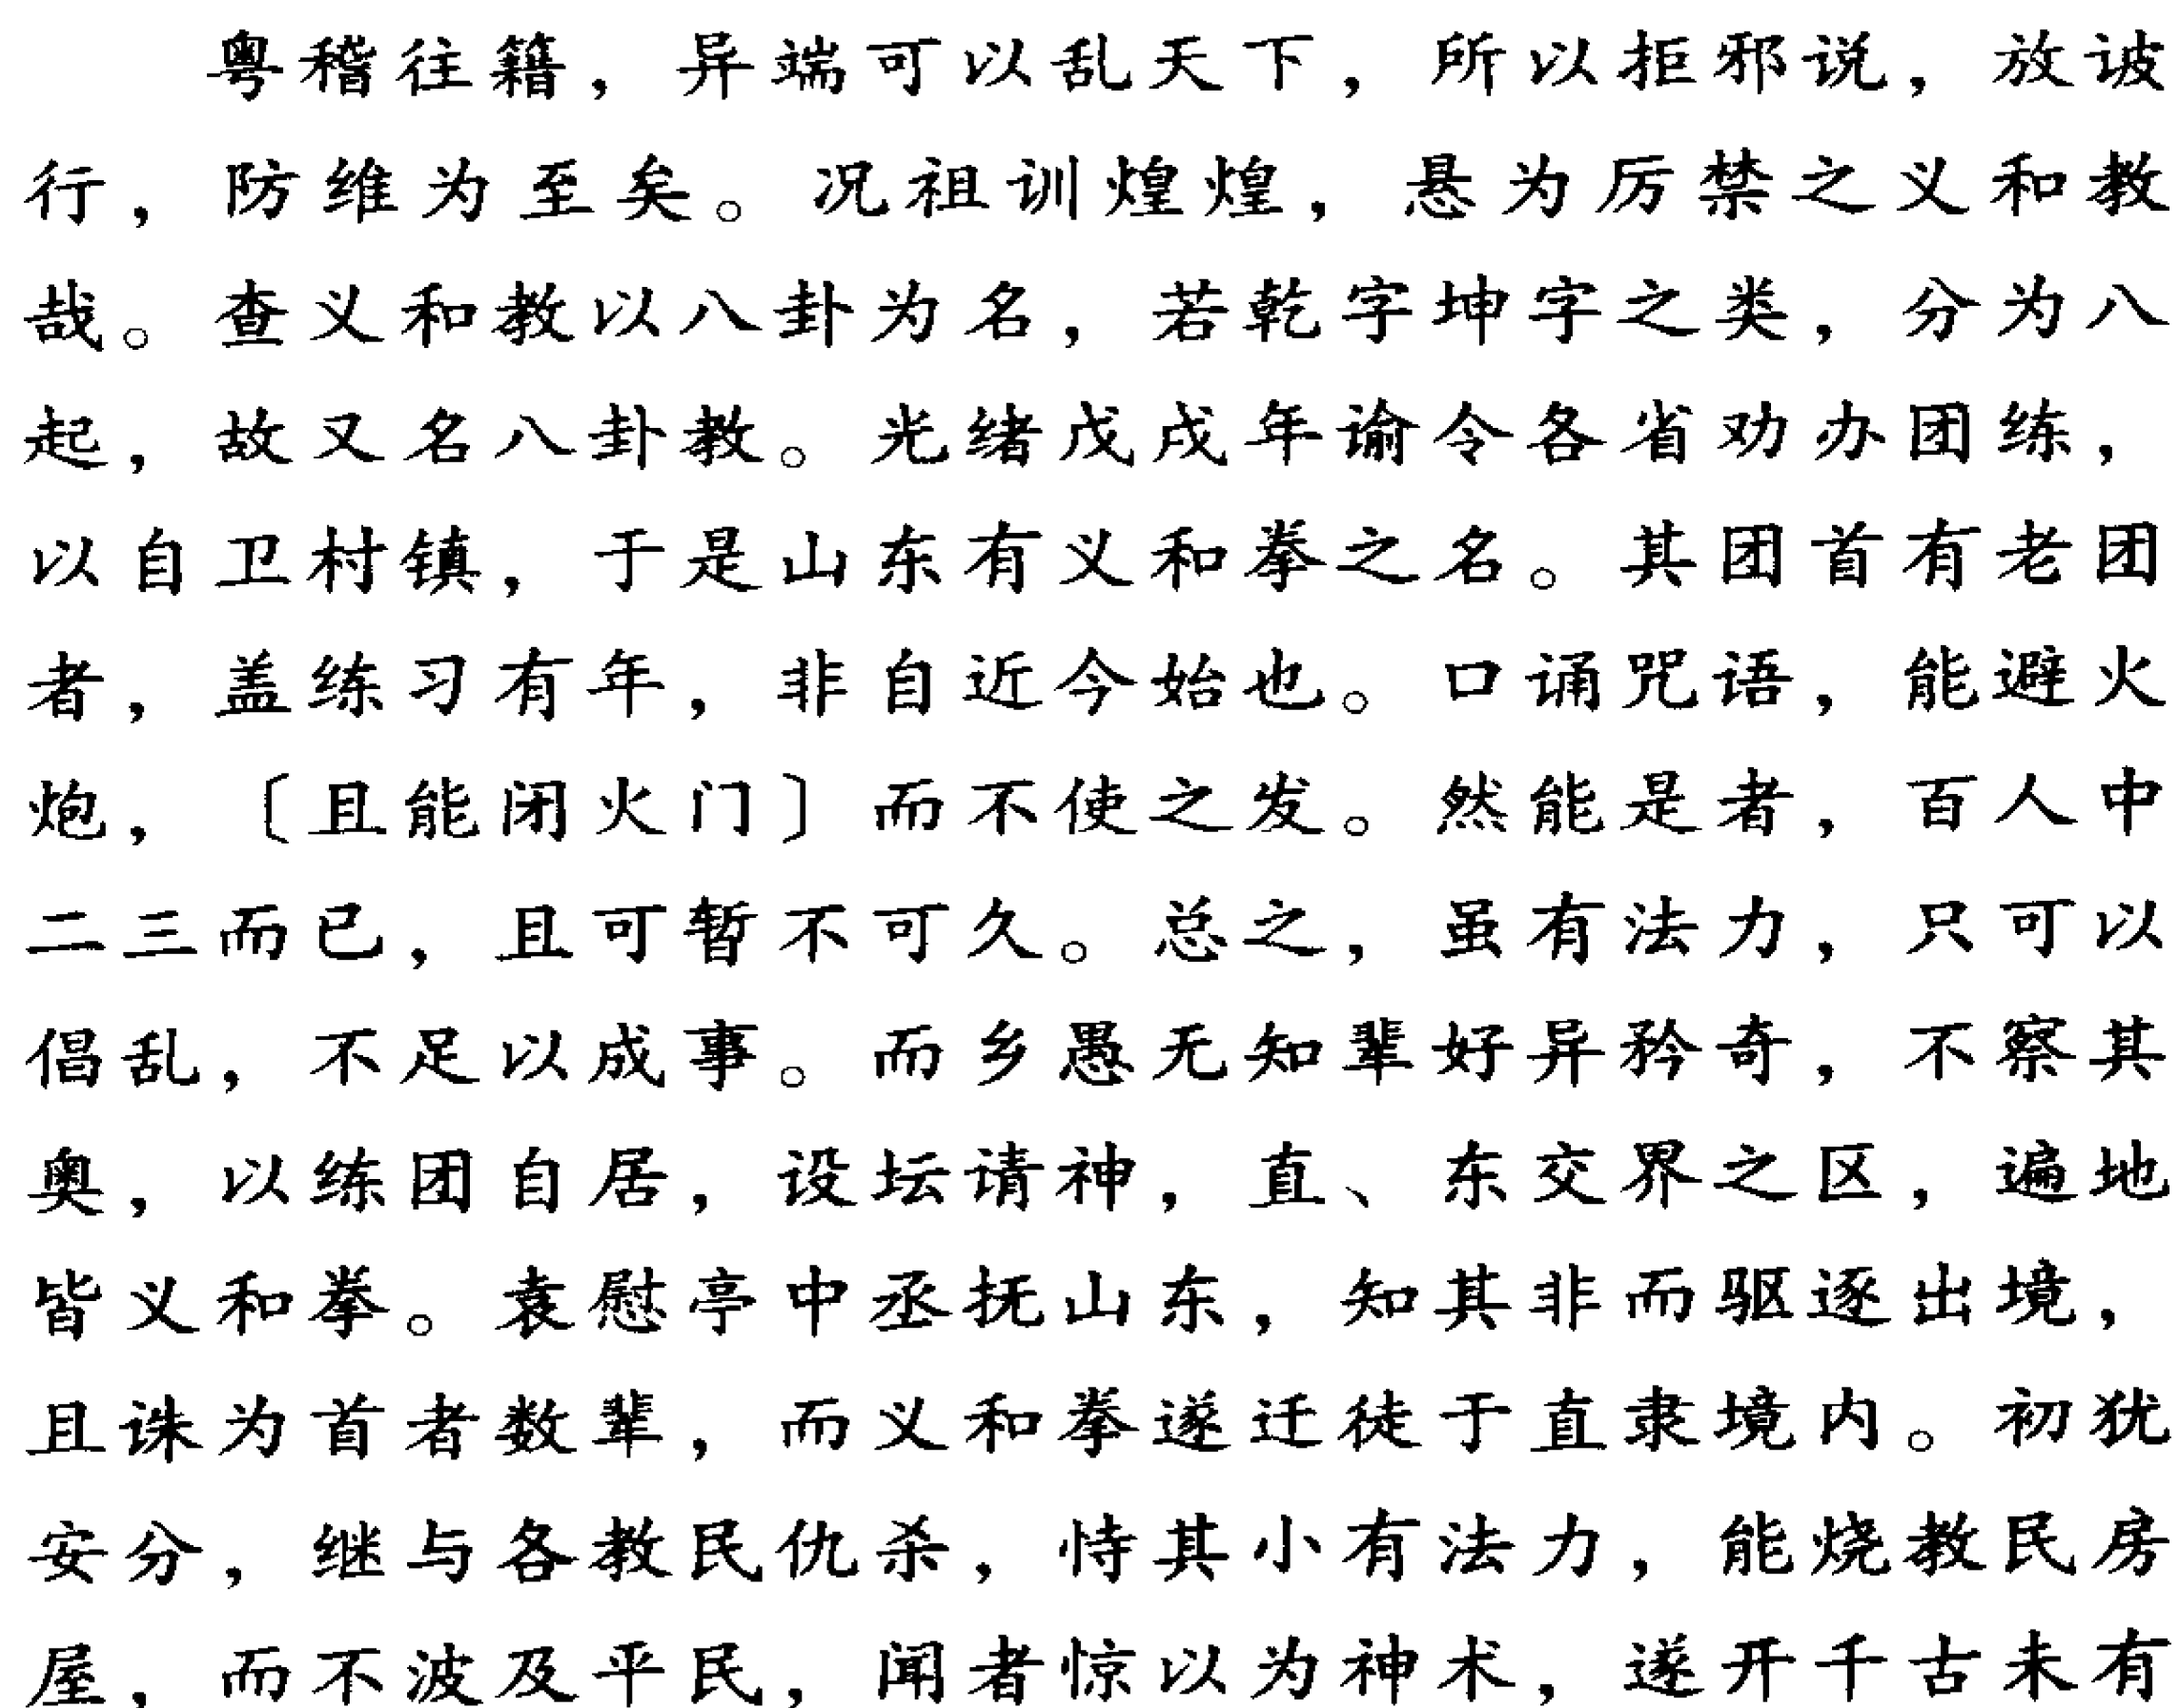 粤稽往籍，异端可以乱天下，所以拒邪说，放诐
行，防维为至矣。况祖训煌煌，悬为厉禁之义和教
哉。查义和教以八卦为名，若乾字坤字之类，分为八
起，故又名八卦教。光绪戊戌年谕令各省劝办团练，
以自卫村镇，于是山东有义和拳之名。其团首有老团
者，盖练习有年，非自近今始也。口诵咒语，能避火
炮，〔且能闭火门〕而不使之发。然能是者，百人中
二三而已，且可暂不可久。总之，虽有法力，只可以
倡乱，不足以成事。而乡愚无知辈好异矜奇，不察其
奥，以练团自居，设坛请神，直、东交界之区，遍地
皆义和拳。袁慰亭中丞抚山东，知其非而驱逐出境，
且诛为首者数辈，而义和拳遂迁徒于直隶境内。初犹
安分，继与各教民仇杀，恃其小有法力，能烧教民房
屋，而不波及平民，闻者惊以为神术，遂开千古未有